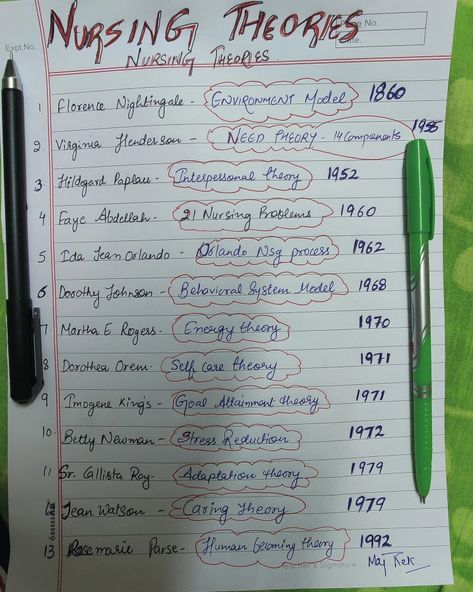 NURSING THEORIES
Expt. No.
Page No.
Date.
NURSING THEORIES
1 Florence Nightingale - ENVIRONMENT Model 1860
2 Virginia Henderson - NEED THEORY - 14 Components 1955
3. Hildegard Paplau - Interpersonal theory 1952
4 Faye Abdellah - 21 Nursing Problems 1960
5 Ida Jean Orlando - Orlando Nsg process 1962
6 Dorothy Johnson - Behavioral System Model 1968
7 Martha E Rogers - Energy theory 1970
8 Dorothea Orem - Self care theory 1971
9 Imogene King's - Goal Attainment theory 1971
10 Betty Newman - Stress Reduction 1972
11 Sr. Callista Roy - Adaptation theory 1979
12 Jean Watson - Caring Theory 1979
13 Rosemarie Parse - Human becoming theory 1992
Teacher's Signature